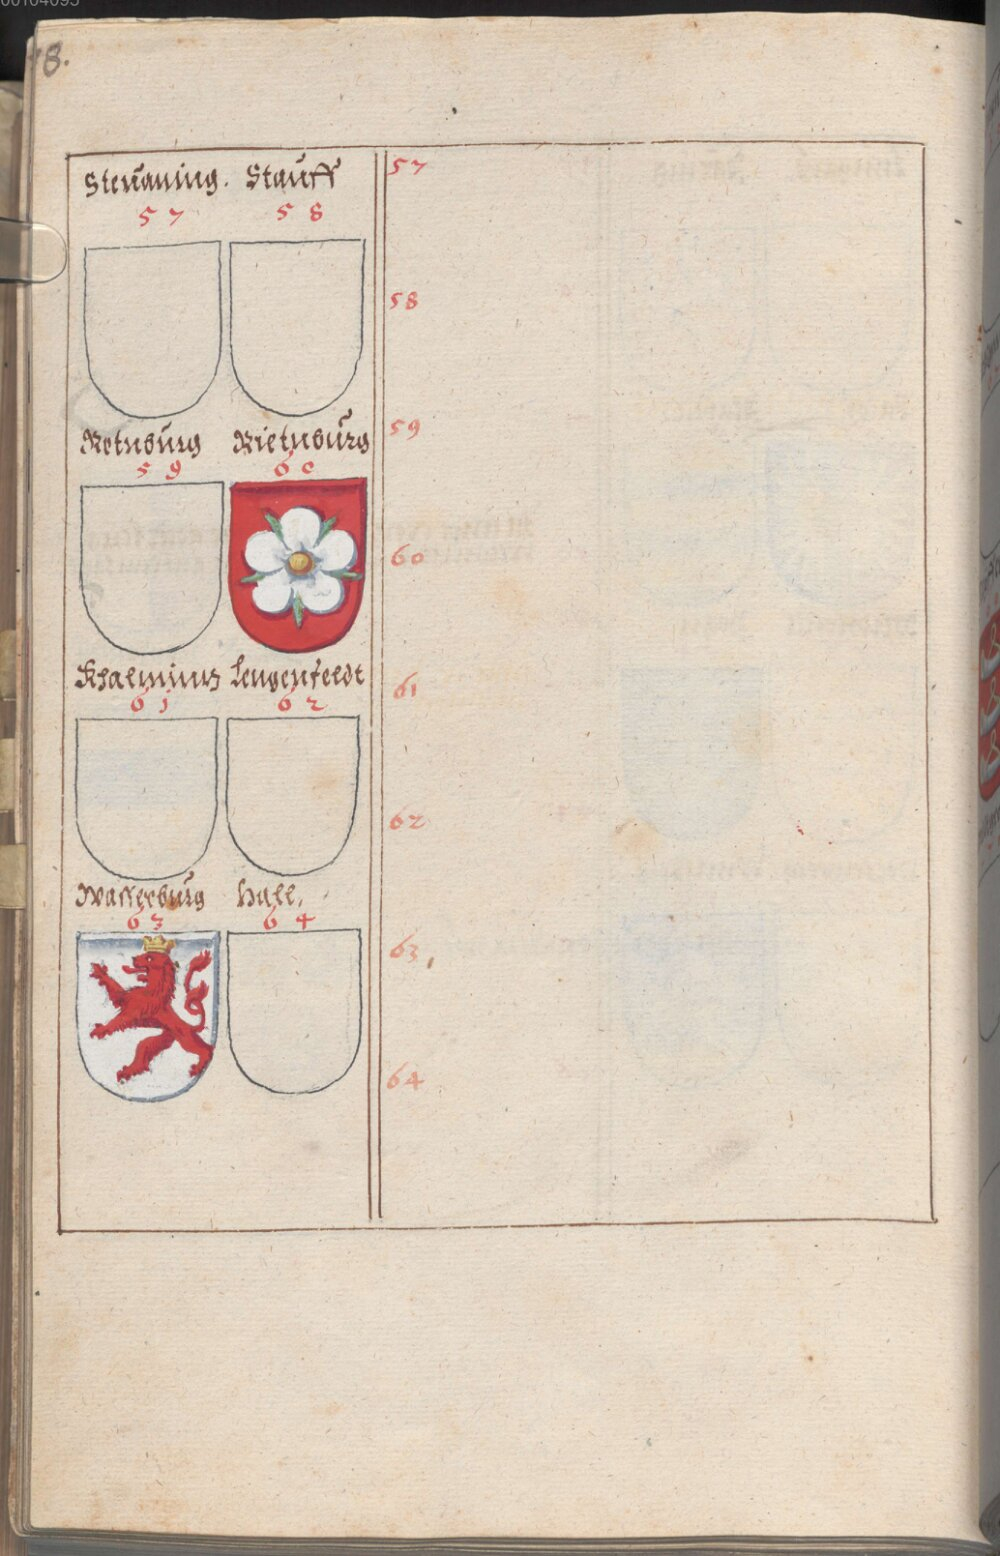 00104095
8.
Steuaning. Stauff
57 58
Retnburg Rietnburg
59 60
Khalmintz Lengenfeldt
61 62
Wasserburg Hall.
63 64
57
58
59
60
61
62
63
64